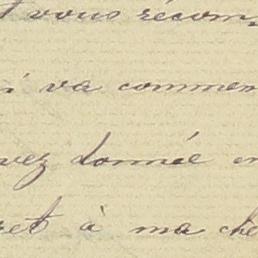 vous récom
va commen
vez donnée en
ret à ma che